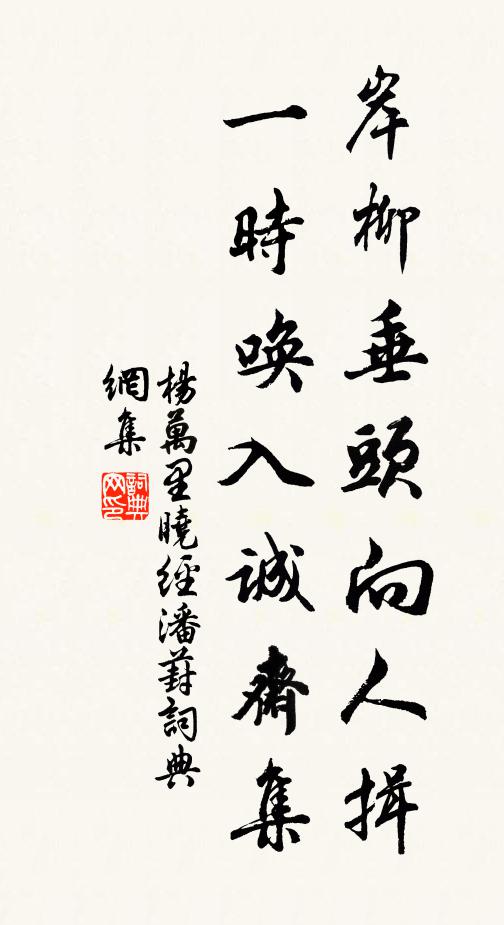 岸柳垂頭向人揖
一時喚入誠齋集
楊萬里曉經潘葑詞典
網集
詞典
网印